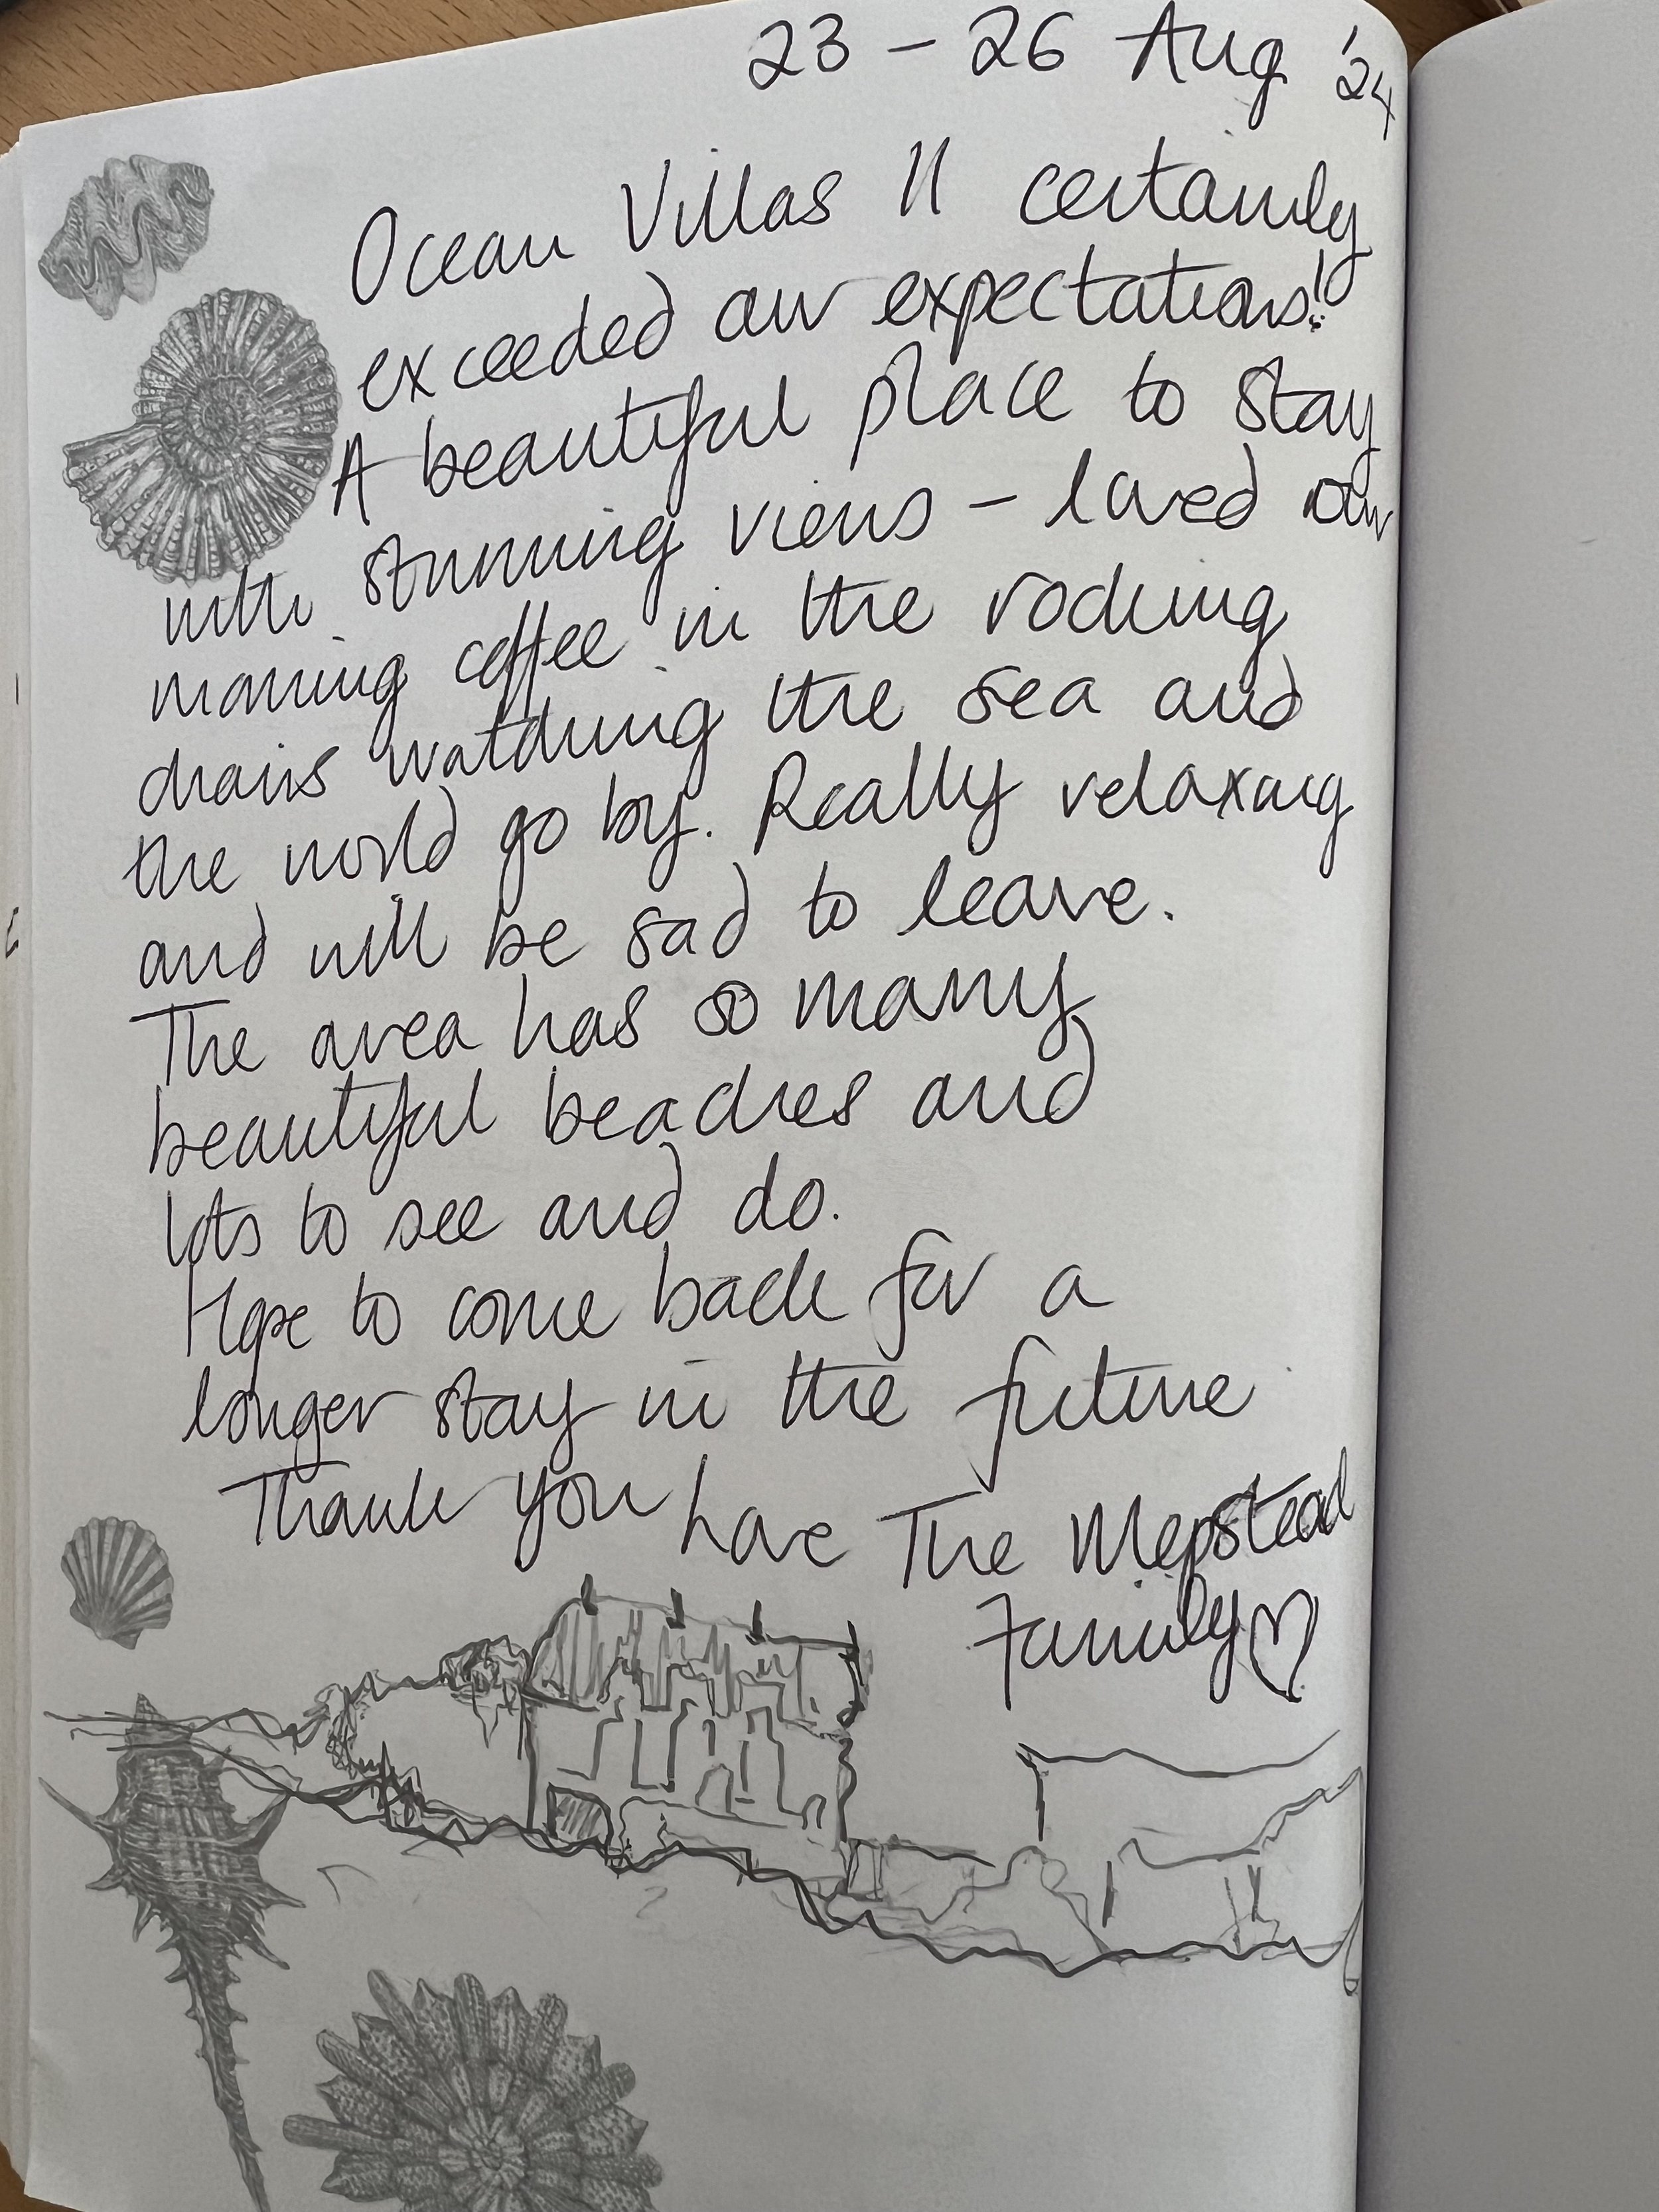 23 – 26 Aug '24
Ocean Villas 11 certainly
exceeded our expectations!
A beautiful place to stay
with stunning views – loved our
morning coffee in the rocking
chairs watching the sea and
the world go by. Really relaxing
and will be sad to leave.
The area has so many
beautiful beaches and
lots to see and do.
Hope to come back for a
longer stay in the future
Thank you Love The Mepstead
Family♡